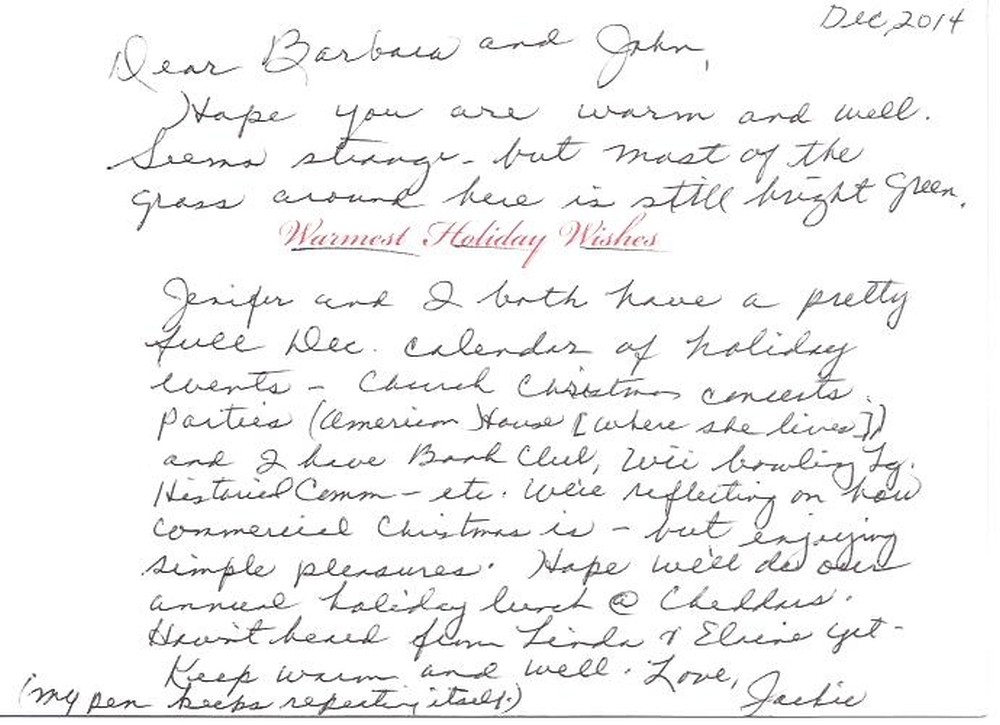 Dec, 2014
Dear Barbara and John,
Hope you are warm and well.
Seems strange - but most of the
grass around here is still bright green.
Warmest Holiday Wishes
Jenifer and I both have a pretty
full Dec. calendar of holiday
events - Church Christmas concerts.
Parties (American House [where she lives])
and I have Book Club, Wii bowling Lg.
Historical Comm - etc. We're reflecting on how
commercial Christmas is - but enjoying
simple pleasures. Hope we'll do our
annual holiday lunch @ Cheddars.
Haven't heard from Linda & Elaine yet -
Keep warm and well. Love,
Jackie
(my pen keeps repeating itself.)